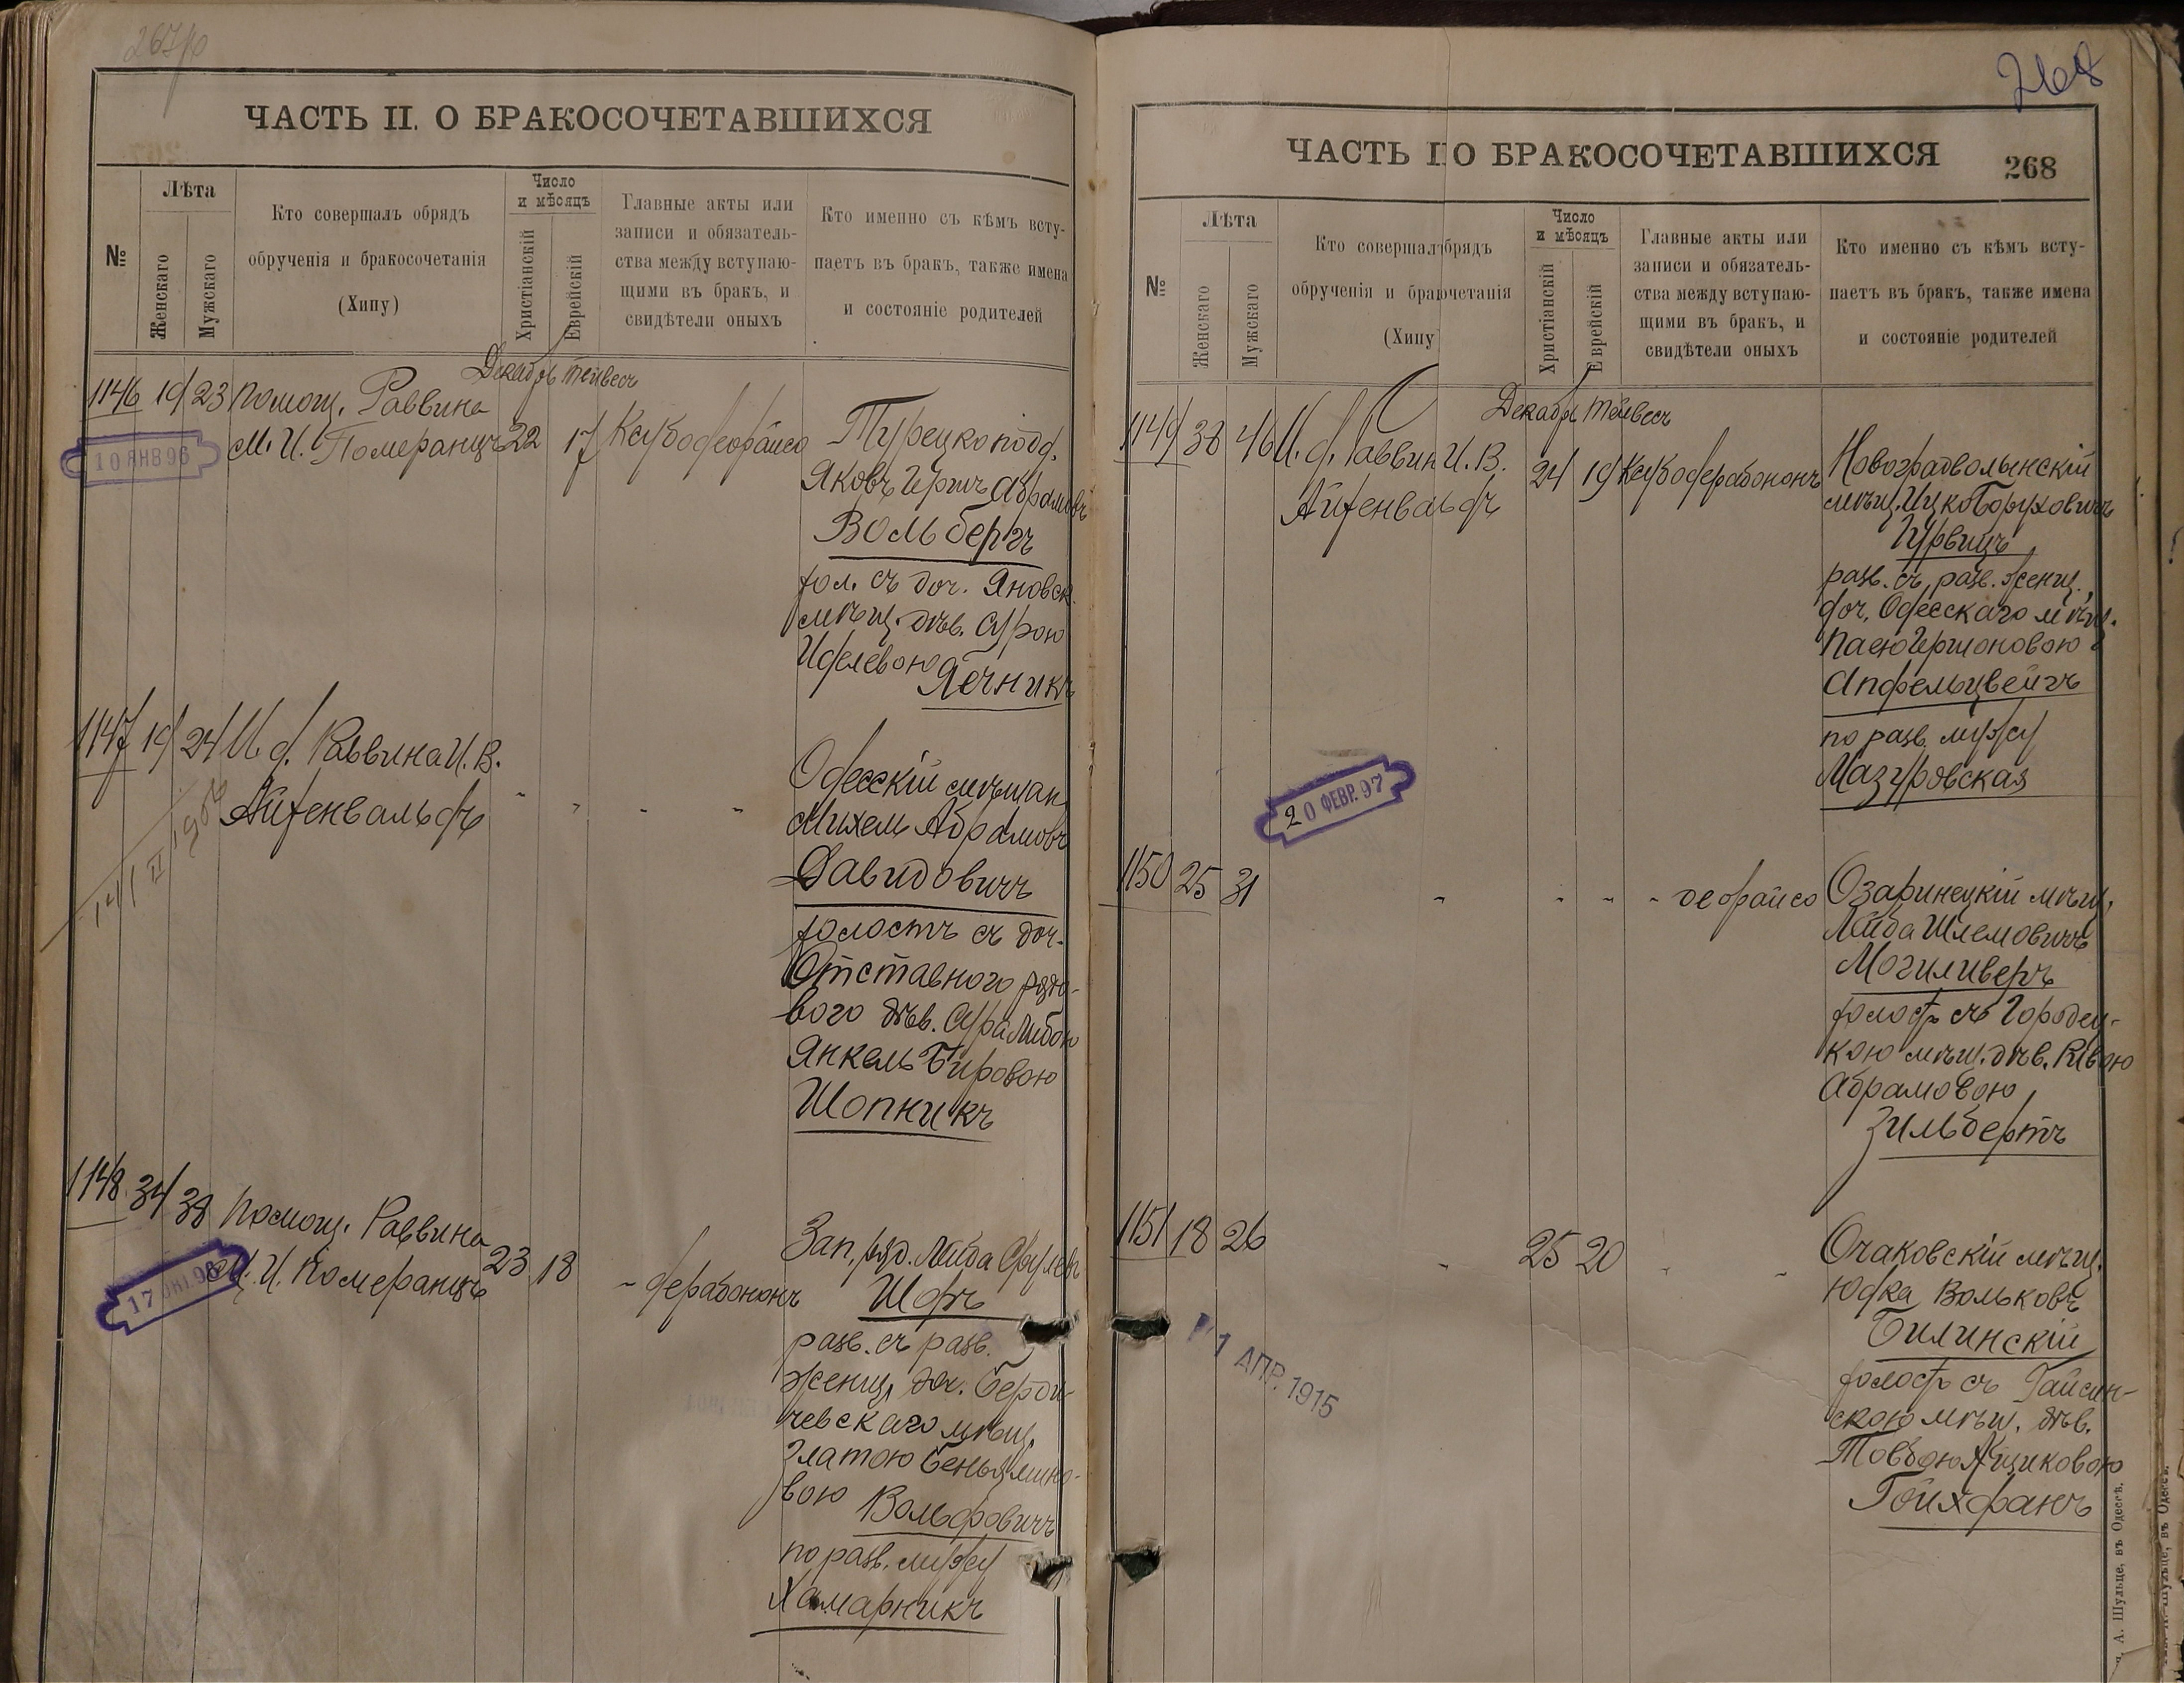 267/о
ЧАСТЬ II. О БРАКОСОЧЕТАВШИХСЯ
№
Лѣта
Женскаго
Мужскаго
Кто совершалъ обрядъ
обрученія и бракосочетанія
(Хипу)
Число
и мѣсяцъ
Христіанскій
Еврейскій
Главные акты или
записи и обязатель-
ства между вступаю-
щими въ бракъ, и
свидѣтели оныхъ
Кто именно съ кѣмъ всту-
паетъ въ бракъ, также имена
и состояніе родителей
Декабр Тейвесъ
1146 19 23 Помощ. Раввина
М. И. Померанцъ 22 17 Ксубодеорайсо
10 ЯНВ 96
Турецкоподд.
Яковъ Гершъ Абрамовъ
Вольбергъ
хол. съ доч. Яновск.
мѣщ. дѣв. Сурою
Иделевою
Ячникъ
1147 19 24 И. д. Раввина И. В.
Айхенвальдъ " " " "
14/II
Одесскій мѣщан.
Михель Абрамовъ
Давидовичъ
холостъ съ доч.
Отставного рядо-
вого дѣв. Сура Либою
Янкель Бировою
Шопникъ
1148 34 38 Помощ. Раввина
М. И. Померанцъ 23 18 " дерабононъ
Зап. ряд. Лейба Срулевъ
Шоръ
разв. съ разв.
женщ. доч. Берди-
чевскаго мѣщ.
Златою Беньямино-
вою
Вольфовичъ
по разв. мужу
Хамарникъ
268
ЧАСТЬ II О БРАКОСОЧЕТАВШИХСЯ
268
№
Лѣта
Женскаго
Мужскаго
Кто совершалъ обрядъ
обрученія и бракосочетанія
(Хипу
Число
и мѣсяцъ
Христіанскій
Еврейскій
Главные акты или
записи и обязатель-
ства между вступаю-
щими въ бракъ, и
свидѣтели оныхъ
Кто именно съ кѣмъ всту-
паетъ въ бракъ, также имена
и состояніе родителей
Декабр Тейвесъ
1149 38 46 И. д. Раввин И. В.
Айхенвальдъ 24 19 Ксубодерабононъ
Новоградволынскій
мѣщ. Ицко Боруховичъ
Гурвицъ
разв. съ разв. женщ.,
доч. Одесскаго мѣщ.
Пасею Гершоновою
Апфельцвейгъ
по разв. мужу
Мазуровская
20 ФЕВР. 97
1150 25 31 " " " " деорайсо
Озаринецкій мѣщ.
Лейба Шлемовичъ
Могиливеръ
холост съ Городец-
кою мѣщ. дѣв. Ривою
Абрамовою
Зильбертъ
1151 18 26 " 25 20 " "
1 АПР. 1915
Очаковскій мѣщ.
Юдка Вольковъ
Билинскій
холост съ Гайсин-
скою мѣщ. дѣв.
Товбою Ициковою
Гойхфанъ
А. Шульце, въ Одессѣ.